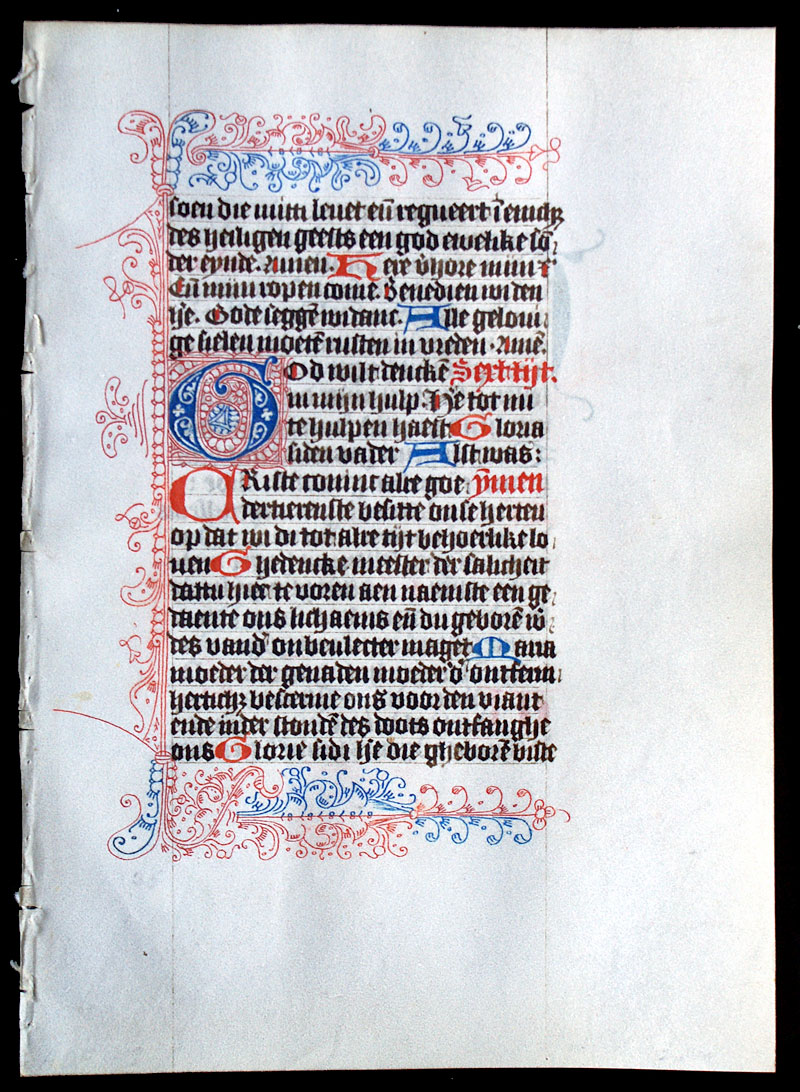 soen die mitti levet eñ regneert ī enicħʒ
des heiligen geests een god ewelike sō
der eynde. Amen. Here v̄hore mijn
Eñ mijn ropen come. Benedien wi den
Gode seggē wi danc. Alle gelovi
ge sielen moetē rusten in vreden. Amē.
God wilt dencken Sexttijt.
in mijn hulp He tot mi
te hulpen haest Gloria
si den vader Alst was:
CRiste coninc alre goe ymen
dertierenste besitte onse herten
op dat wi di tot alre tijt behoerlike lo
uen Ghedencke meester der salicheit
dattu hier te voren aen naemste een ge
daente ons lichaems eñ du geborē
des vand' onbeulecter maget Maria
moeder der genaden moeder d' ontferm
herticħʒ bescerme ons voor den viant
ende inder stondē des doots ontfanghe
ons Glorie si di die gheborē biste